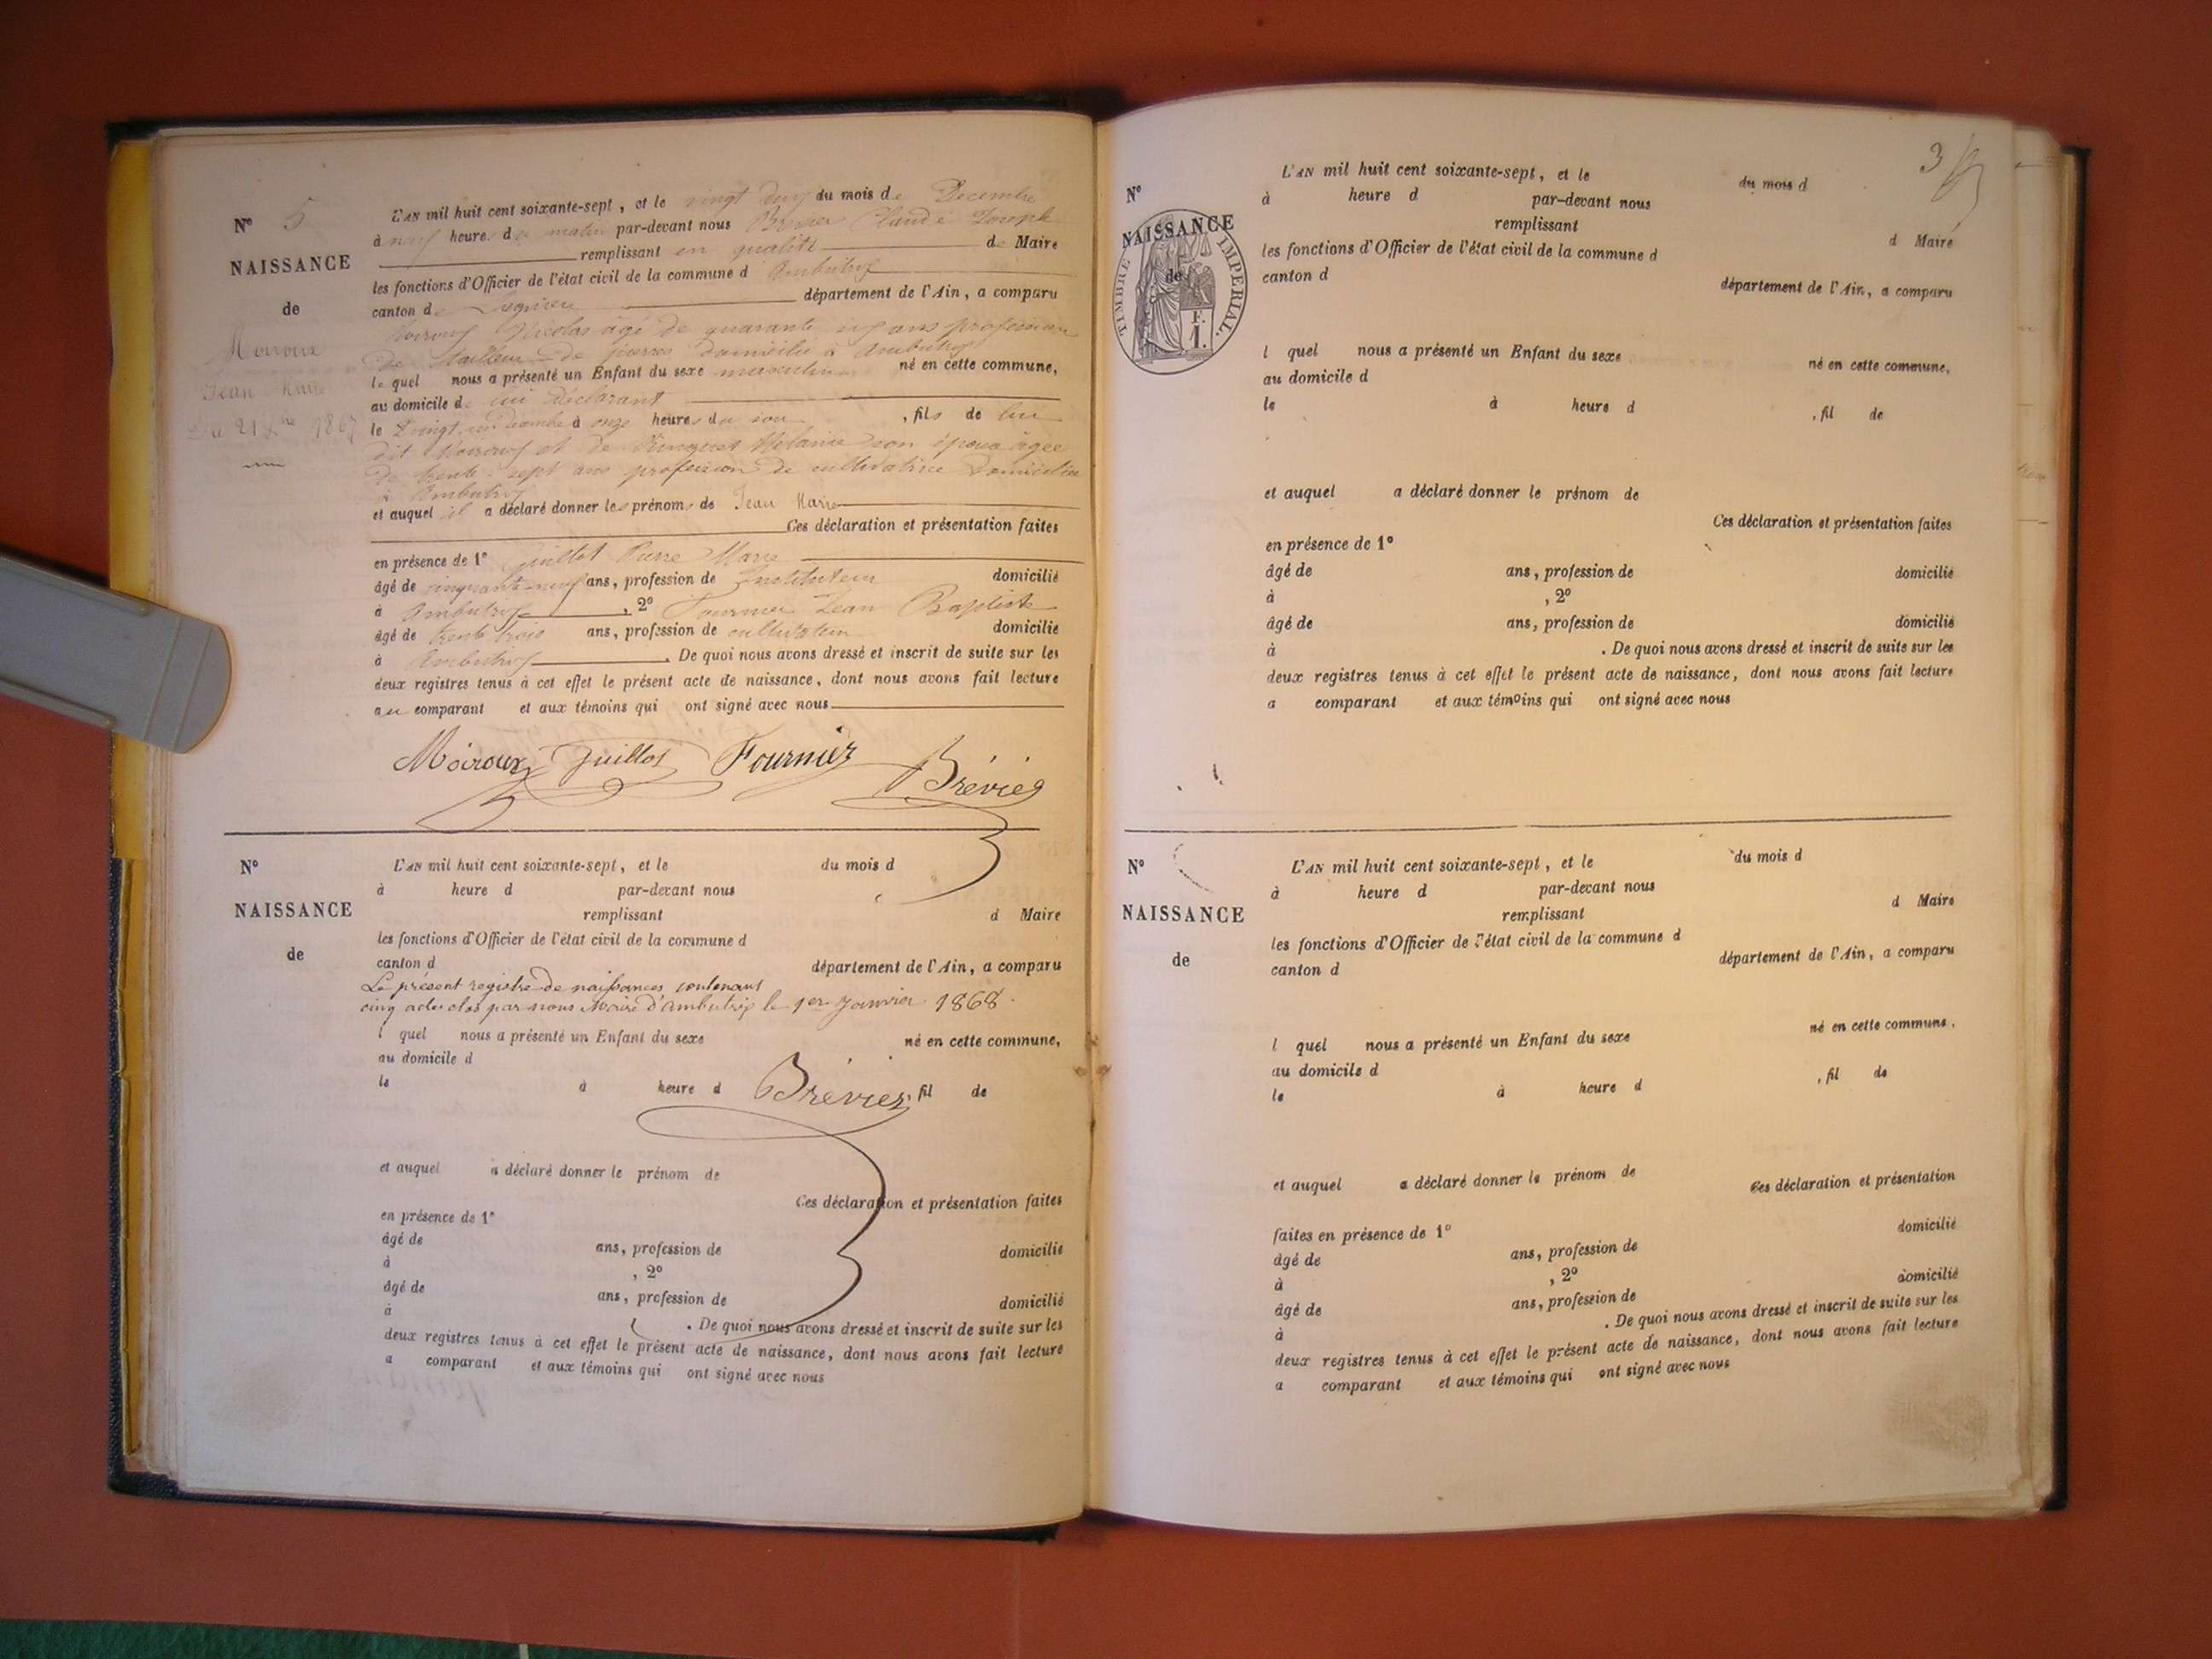 N° 5
NAISSANCE
de
Moiroux
Jean Marie
Du 21 Xbre 1867
L'AN mil huit cent soixante-sept, et le vingt deux du mois de Decembre
à neuf heures du matin par-devant nous Brevier Claude Joseph
remplissant en qualité de Maire
les fonctions d'Officier de l'état civil de la commune d Ambutrix
canton de Lagnieu département de l'Ain, a comparu
Moiroux Nicolas âgé de quarante ans profession
de tailleur de pierres domicilié à Ambutrix
le quel nous a présenté un Enfant du sexe masculin né en cette commune,
au domicile de lui déclarant
le vingt un à onze heures du soir, fils de lui
dit Moiroux et de Mélanie son épouse âgée
de trente-sept ans profession de cultivatrice domiciliée
à Ambutrix
et auquel il a déclaré donner les prénoms de Jean Marie
Ces déclaration et présentation faites
en présence de 1° Guillot Pierre Marie
âgé de cinquante-neuf ans, profession de Instituteur domicilié
à Ambutrix, 2° Fournier Jean Baptiste
âgé de trente trois ans, profession de cultivateur domicilié
à Ambutrix. De quoi nous avons dressé et inscrit de suite sur les
deux registres tenus à cet effet le présent acte de naissance, dont nous avons fait lecture
au comparant et aux témoins qui ont signé avec nous
Moiroux Guillot Fournier Brévier
N°
NAISSANCE
de
L'AN mil huit cent soixante-sept, et le du mois d
à heure d par-devant nous
remplissant d Maire
les fonctions d'Officier de l'état civil de la commune d
canton d département de l'Ain, a comparu
Le présent registre de naissances contenant
cinq actes clos par nous Maire d'Ambutrix le 1er Janvier 1868.
l quel nous a présenté un Enfant du sexe né en cette commune,
au domicile d
le à heure d , fil de
Brévier
et auquel a déclaré donner le prénom de
Ces déclaration et présentation faites
en présence de 1°
âgé de ans, profession de domicilié
à , 2°
âgé de ans, profession de domicilié
à . De quoi nous avons dressé et inscrit de suite sur les
deux registres tenus à cet effet le présent acte de naissance, dont nous avons fait lecture
a comparant et aux témoins qui ont signé avec nous
3
N°
NAISSANCE
de
TIMBRE IMPERIAL.
F.
1.
L'AN mil huit cent soixante-sept, et le du mois d
à heure d par-devant nous
remplissant d Maire
les fonctions d'Officier de l'état civil de la commune d
canton d département de l'Ain, a comparu
l quel nous a présenté un Enfant du sexe né en cette commune,
au domicile d
le à heure d , fil de
et auquel a déclaré donner le prénom de
Ces déclaration et présentation faites
en présence de 1°
âgé de ans, profession de domicilié
à , 2°
âgé de ans, profession de domicilié
à . De quoi nous avons dressé et inscrit de suite sur les
deux registres tenus à cet effet le présent acte de naissance, dont nous avons fait lecture
a comparant et aux témoins qui ont signé avec nous
N°
NAISSANCE
de
L'AN mil huit cent soixante-sept, et le du mois d
à heure d par-devant nous
remplissant d Maire
les fonctions d'Officier de l'état civil de la commune d
canton d département de l'Ain, a comparu
l quel nous a présenté un Enfant du sexe né en cette commune.
au domicile d
le à heure d , fil de
et auquel a déclaré donner le prénom de
Ces déclaration et présentation
faites en présence de 1° domicilié
âgé de ans, profession de
à , 2° domicilié
âgé de ans, profession de
à . De quoi nous avons dressé et inscrit de suite sur les
deux registres tenus à cet effet le présent acte de naissance, dont nous avons fait lecture
a comparant et aux témoins qui ont signé avec nous